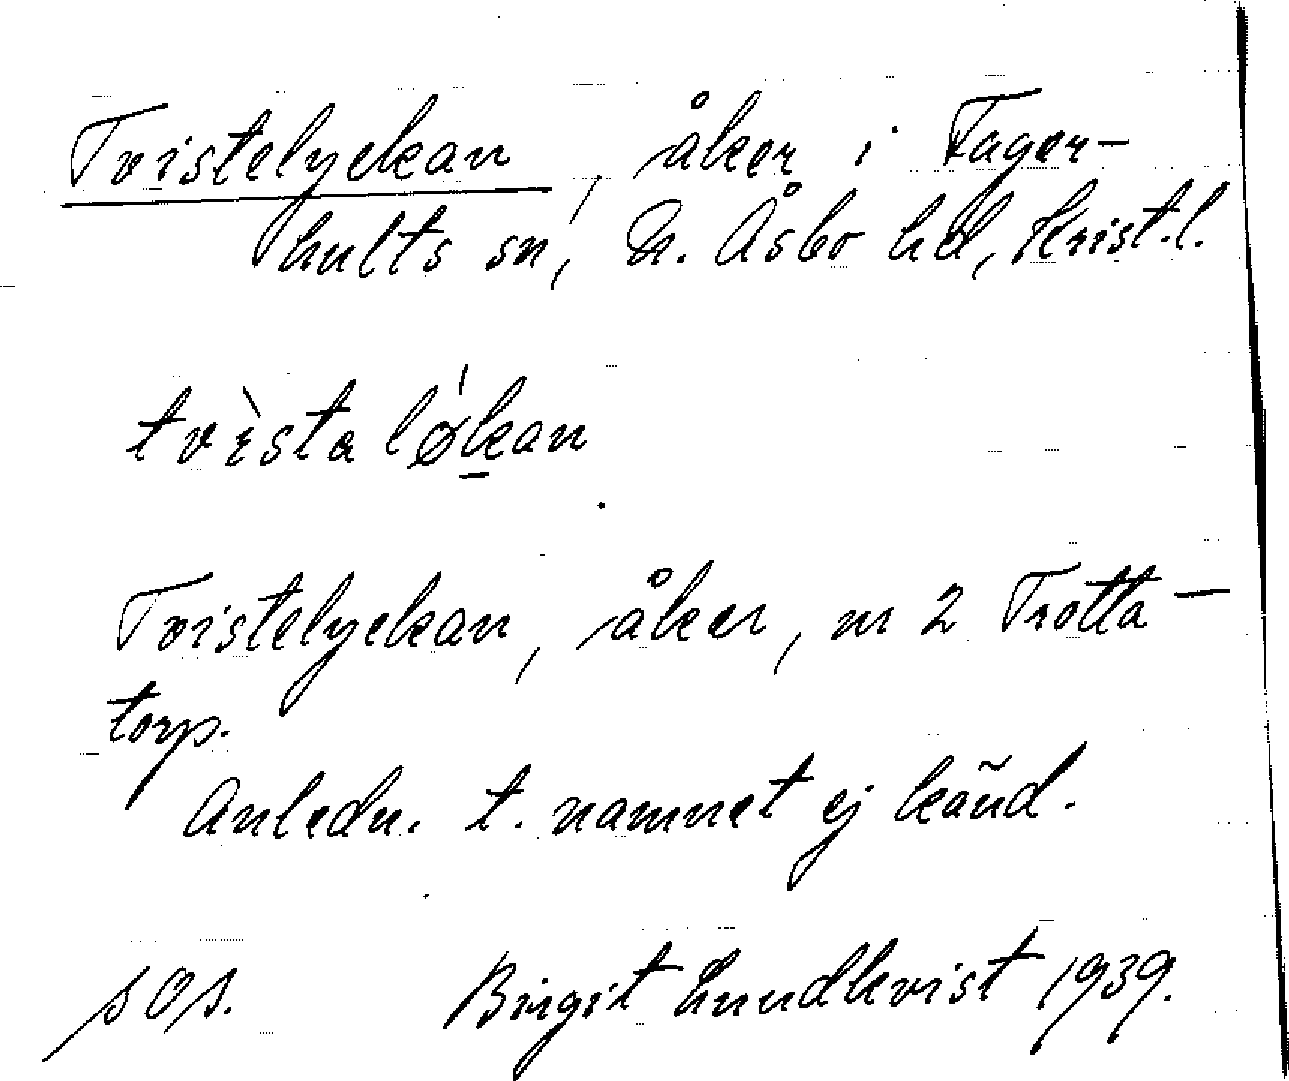 Tvistelyckan, åker i Fager-
hults sn, N. Åsbo hd, Krist.l.
tvìsta lǿkan
Tvistelyckan, åker, nr 2 Trotta-
torp.
Anledn. t. namnet ej känd.
sOs. Birgit Lundkvist 1939.